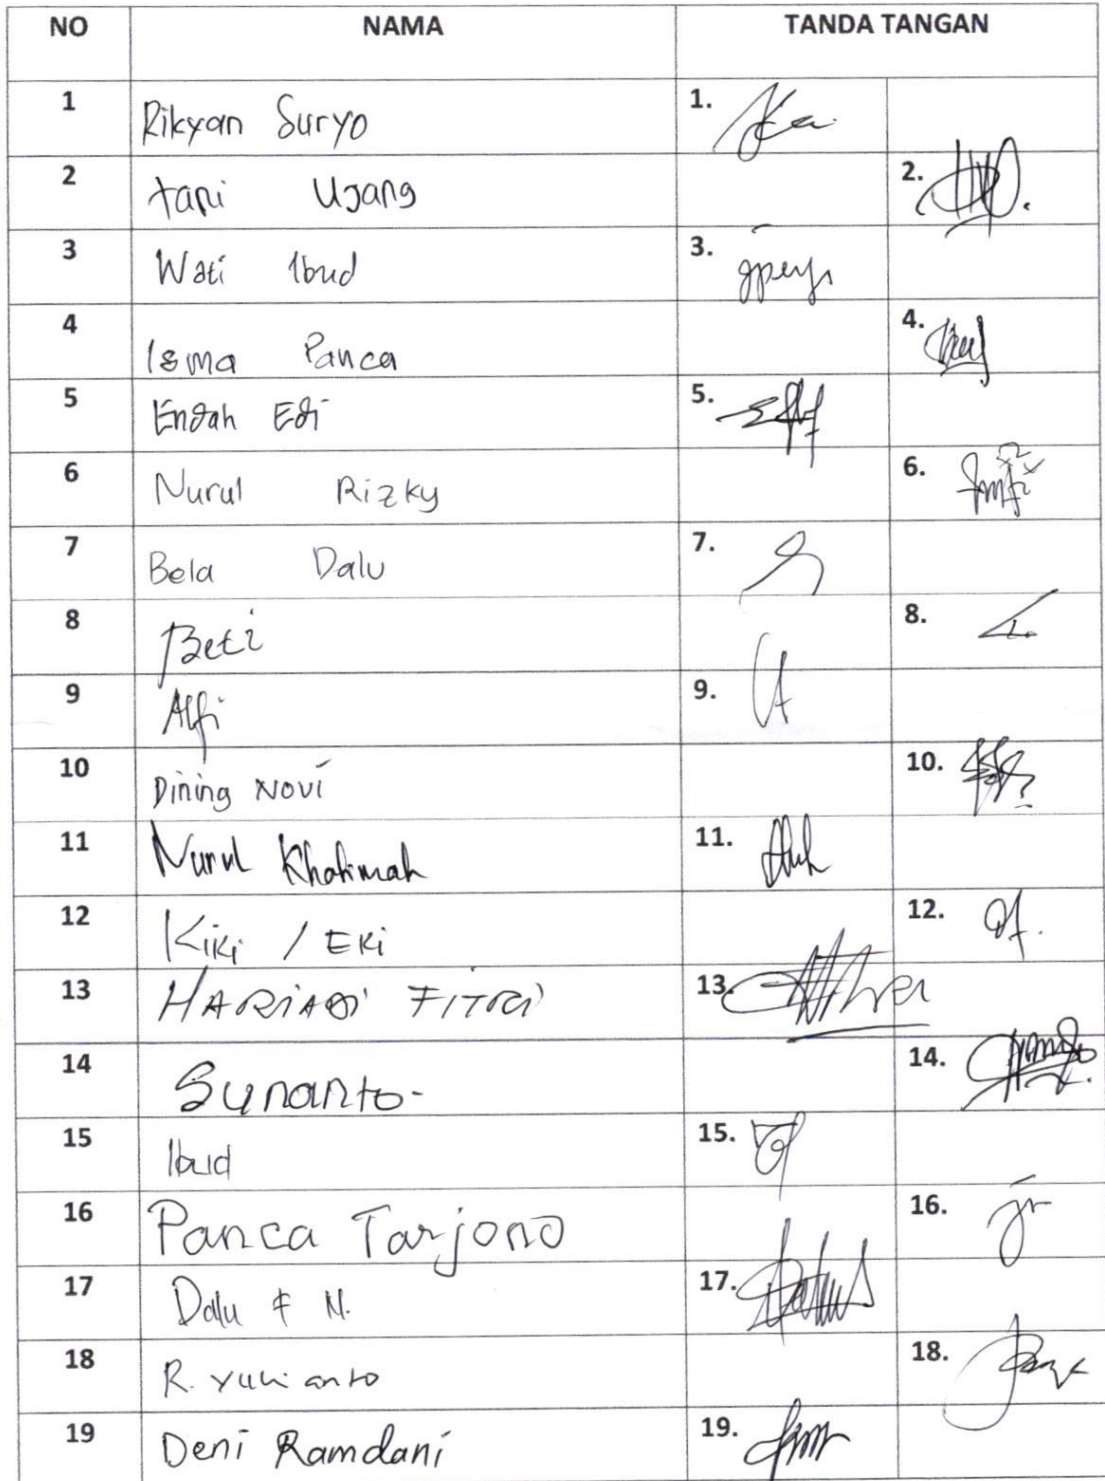 NO NAMA TANDA TANGAN
1 Rikyan Suryo 1.
2 tapi Ujang 2.
3 Wati Ibud 3.
4 Isma Panca 4.
5 Endah Edi 5.
6 Nurul Rizky 6.
7 Bela Dalu 7.
8 Beti 8.
9 Alfi 9.
10 Dining Novi 10.
11 Nurul Khotimah 11.
12 Kiki / Eki 12.
13 HARIADI FITRI 13.
14 Sunanto- 14.
15 Ibud 15.
16 Panca Tarjono 16.
17 Dalu F N. 17.
18 R. Yulianto 18.
19 Deni Ramdani 19.